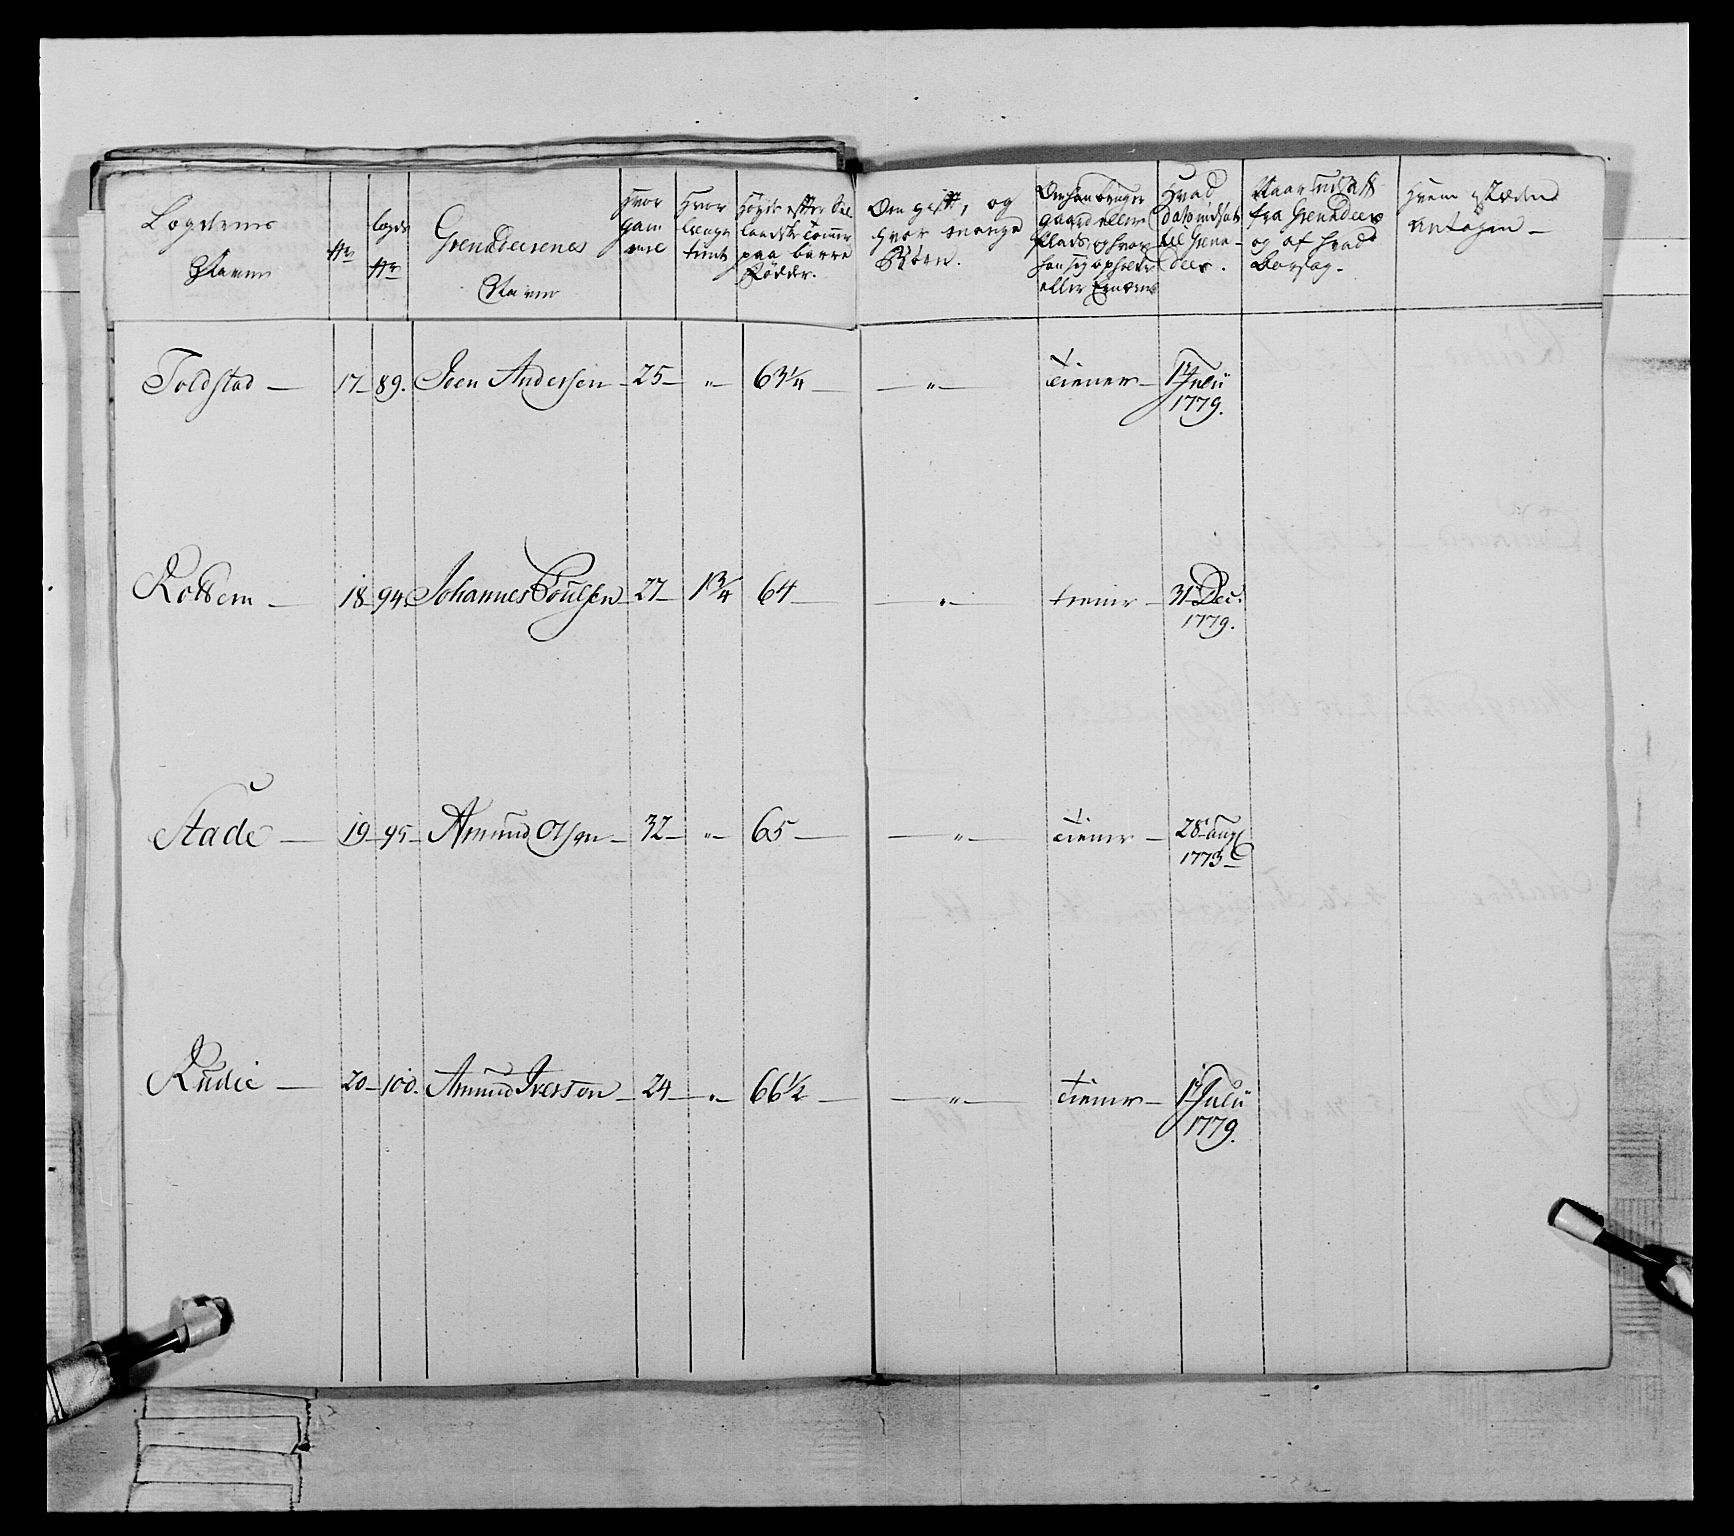 Legdernes Navne
No
Legds No
Grenadeerenes Navne
Hvor gammel
Hvor længe tient
Høyde efter Sel. Tommer paa barre Fødder.
Om gift, og hvor mange Børn.
Om han bruger gaard eller Plads, og hvor han sig opholder eller
Hvad dato indsat til Grenadeer.
Naar udsatt fra Grenadeer og af hvad Aarsag.
Hvem i Stæden antagen
Toldstad — 17 — 89. Joen Andersen — 25 — " 63 1/4 — " — tiener — 1 Julii 1779.
Kottem — 18 — 94. Johannes Poulsen — 27 — 1 3/4 64 — " — tiener — 31 Dec: 1779.
Stade — 19 — 95 — Amund Olsen — 32 — " — 65 — " — tiener — 28 Aug 1773
Rudie — 20 — 100. Amund Iversøn — 24 — " — 66 1/2 — " — tiener — 1 Julii 1779.